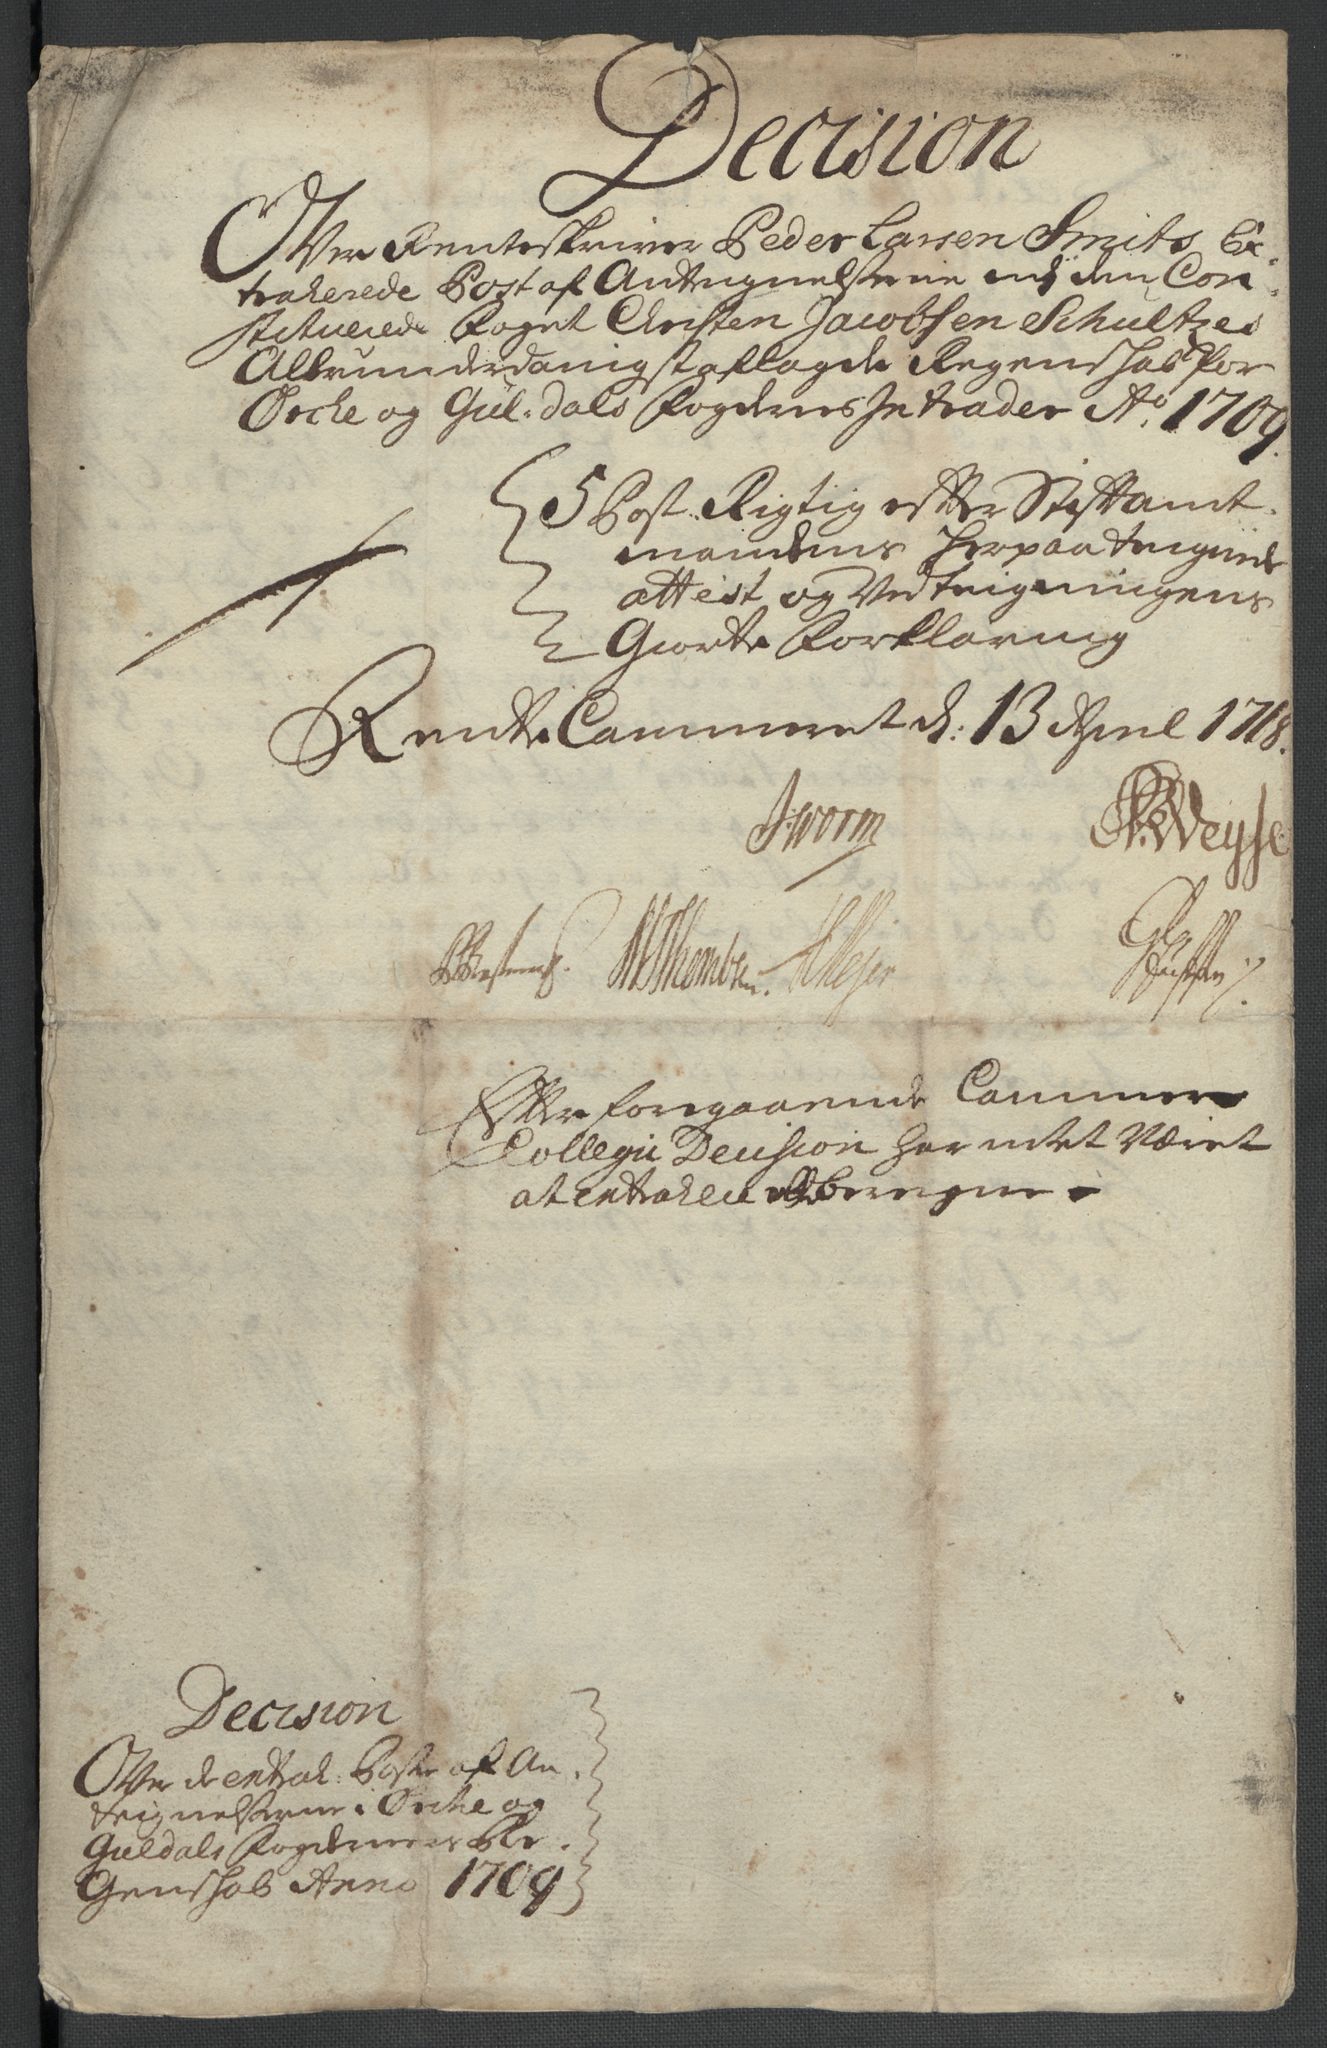 Decision
Over Renteskriver Peder Larsen Smits Ex-
traherede Post af Antegnelserne ved den Con-
stituerede Foget Christen Jacobsen Schultzes
Allerunderdanigst aflagde Regenschab for
Orche og Gul-dals Fogderies Intrader Ao. 1709.
5 Post. Rigtig efter Stiftamt-
mandens herpaa teignede
attest og Vedteigningens
Giorte Forklaring
Rente Cammeret d: 13 April 1718.
J Worm
Weyse
Thomsen. Meyer
Efter foregaaende Cammer
Collegii Decision har intet Været
at extrahere eller beregne
Decision
Over de extrah: Poster af An-
teignelserne i Orche og
Guldals Fogderiers Re-
Genschab Anno 1709